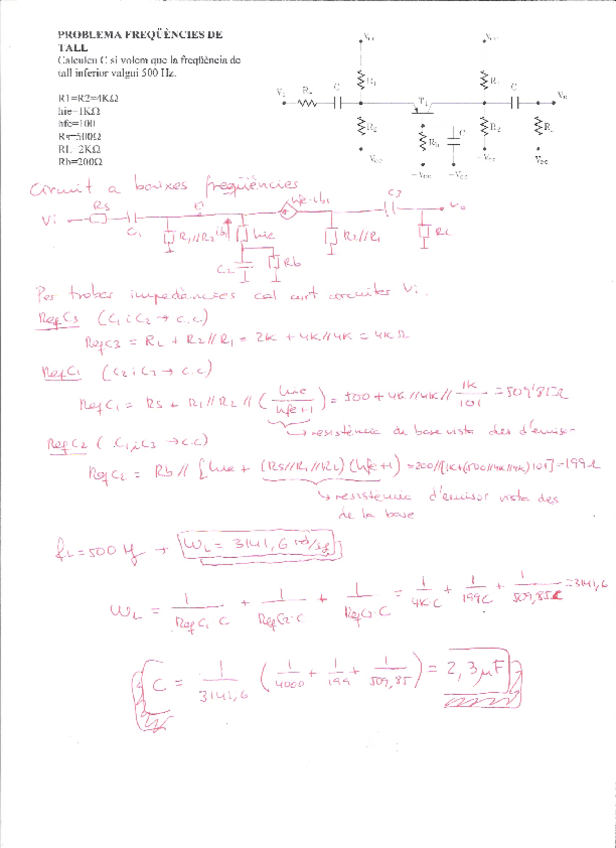 PROBLEMA FREQÜÈNCIES DE
TALL
Calculeu C si volem que la freqüència de
tall inferior valgui 500 Hz.
R1=R2=4KΩ
hie=1KΩ
hfe=100
Rs=500Ω
RL=2KΩ
Rb=200Ω
Vcc
R1
Vi
Rs
C
T1
C
Vo
R2
Rb
C
R2
Circuit a baixes freqüències
Vi
Rs
C1
R1//R2
ib
hie
hfe·ib
C3
Vo
C2
Rb
R2//R1
RL
Per trobar impedàncies cal curt circuitar Vi.
ReqC3 (C1 i C2 → c.c)
ReqC3 = RL + R2//R1 = 2K + 4K//4K = 4KΩ
ReqC1 (C2 i C3 → c.c)
ReqC1 = Rs + R1//R2//(hie/hfe+1) = 500 + 4K//4K//1K/101 = 509'85Ω
→ resistència de base vista des d'emisor
ReqC2 (C1 i C3 → c.c)
ReqC2 = Rb//[hie + (Rs//R1//R2)(hfe+1)] = 200//[1K+(500//4K//4K)101] = 199Ω
→ resistencia d'emisor vista des
de la base
fL=500 Hz → WL = 3141,6 rd/sg
WL = 1/ReqC1·C + 1/ReqC2·C + 1/ReqC3·C = 1/4K·C + 1/199C + 1/509,85C = 3141,6
C = 1/3141,6 (1/4000 + 1/199 + 1/509,85) = 2,3μF